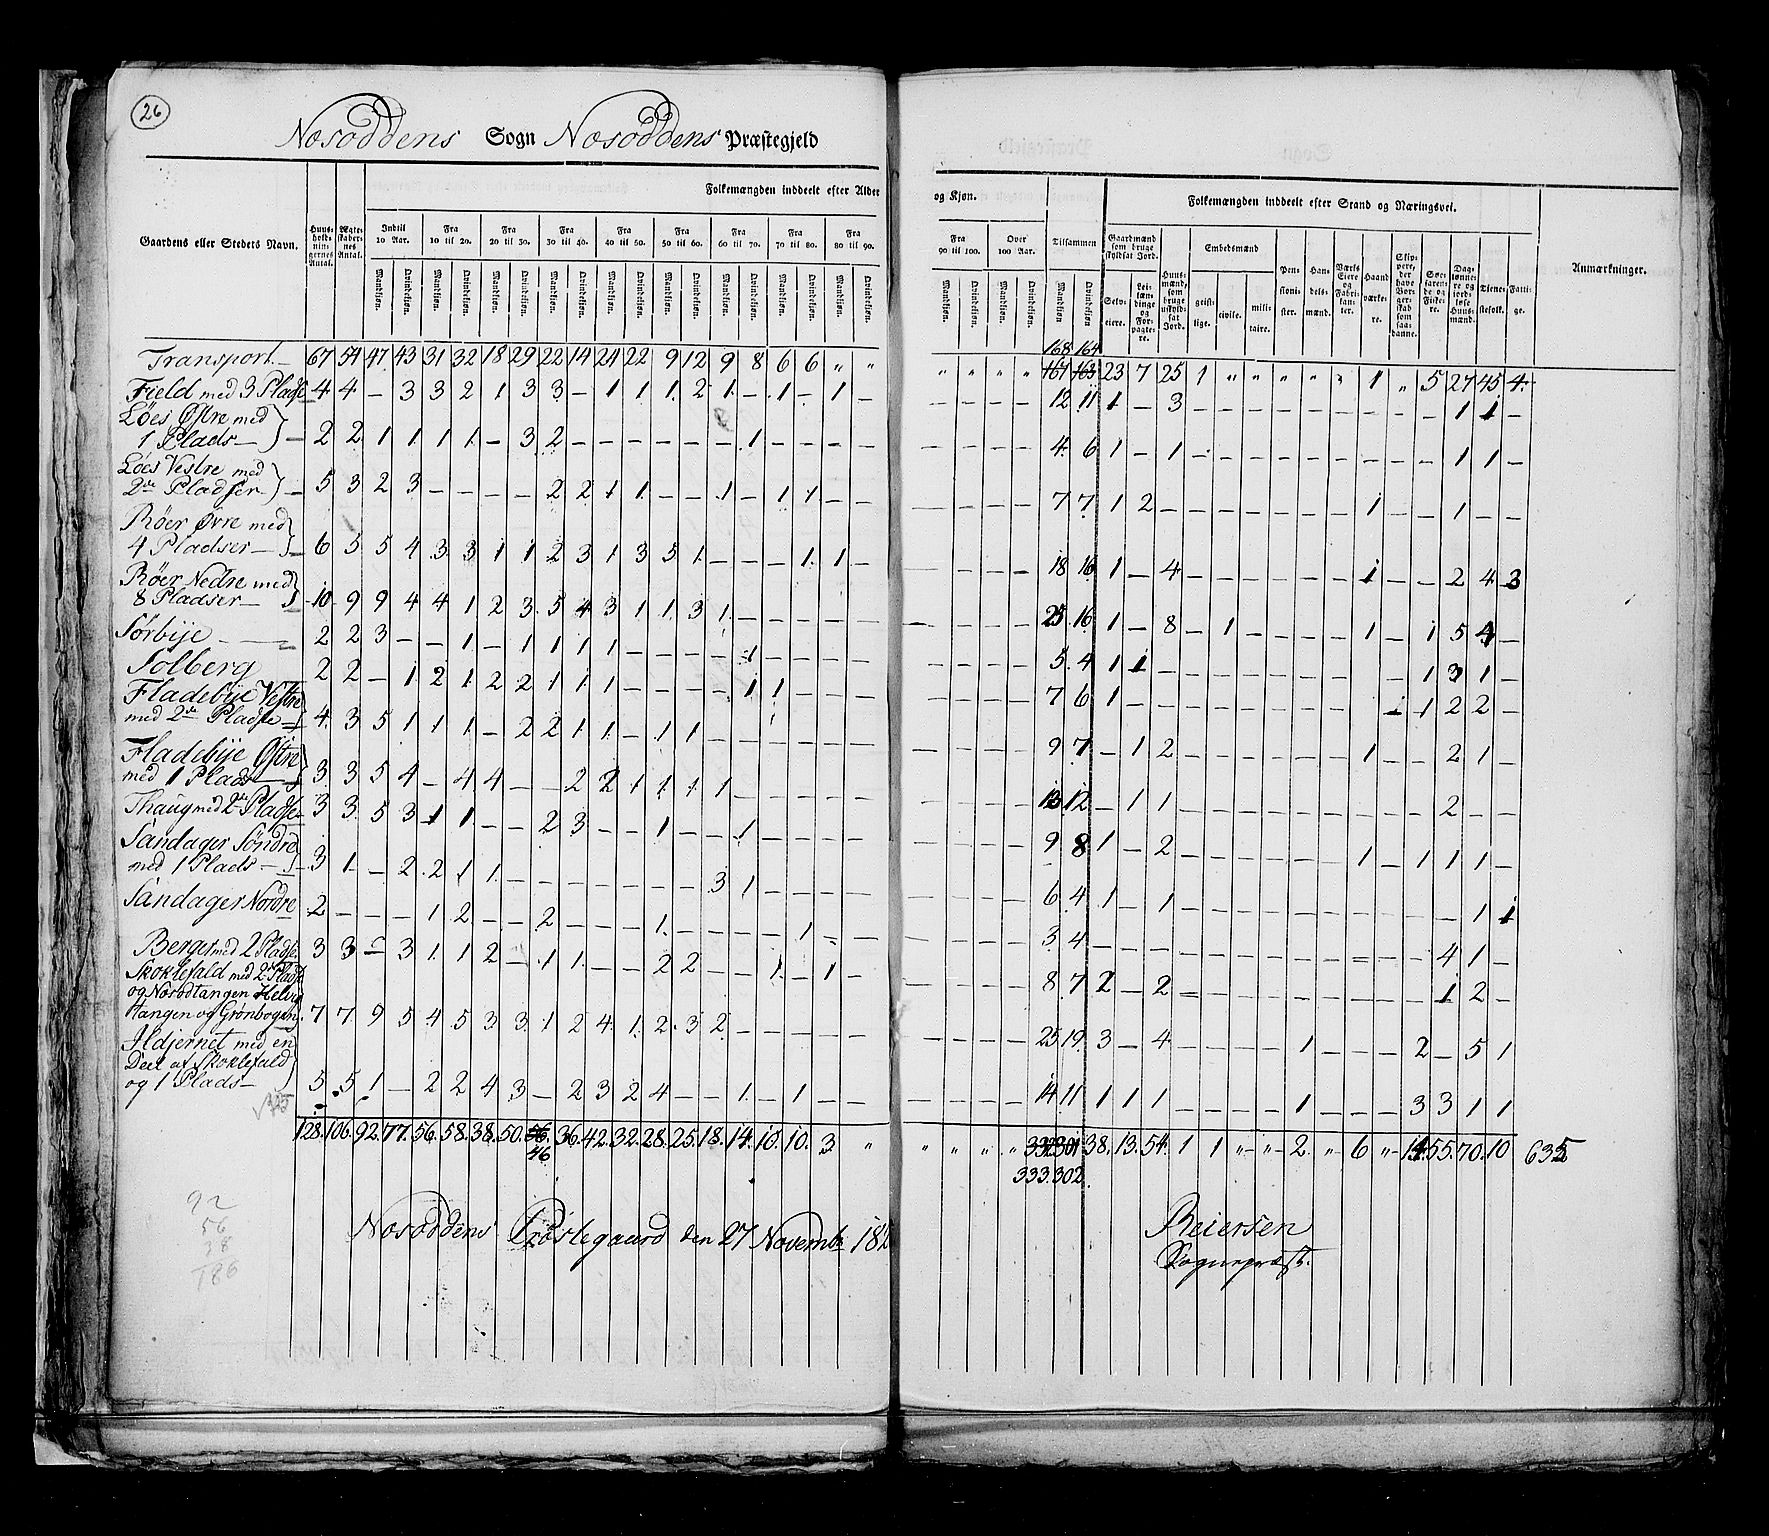 26
Nœsoddens Sogn Nœsoddens Præstegjeld
Folkemængden inddeelt efter Alder og Kjøn. Folkemængden inddeelt efter Stand og Næringsvei.
Gaardens eller Stedets Navn. Huusholdningernes Antal. Ægteskabernes Antal. Indtil 10 Aar. Fra 10 til 20. Fra 20 til 30. Fra 30 til 40. Fra 40 til 50. Fra 50 til 60. Fra 60 til 70. Fra 70 til 80. Fra 80 til 90. Fra 90 til 100. Over 100 Aar. Tilsammen Gaardmænd som bruge skyldsat Jord. Huusmænd, som bruge uskyldsat Jord. Embedsmænd Pensionister. Handelsmænd. Værks Eiere og Fabrikanter. Haandværkere. Skippere, der have Borgerskab som saadanne. Søefarende og Fiskere. Daglønnere og jordløse Huusmænd. Tjenestefolk. Fattige. Anmærkninger.
Mandkjøn. Qvindekjøn. Mandkjøn. Qvindekjøn. Mandkjøn. Qvindekjøn. Mandkjøn. Qvindekjøn. Mandkjøn. Qvindekjøn. Mandkjøn. Qvindekjøn. Mandkjøn. Qvindekjøn. Mandkjøn. Qvindekjøn. Mandkjøn. Qvindekjøn. Mandkjøn. Qvindekjøn. Mandkjøn. Qvindekjøn. Mandkjøn Qvindekjøn Selveiere. Leilændinge og Forpagtere. geistlige. civile. militaire.
168 164
Transport 67 54 47 43 31 32 18 29 22 14 21 22 9 12 9 8 6 6 " " " " " " 167 163 23 7 25 1 " " " " " 1 " 5 27 45 4
Field med 3 Pladse 4 4 - 3 3 2 1 3 3 - 1 1 1 2 1 - 1 - 1 - - - - - 12 11 1 - 3 - - - - - - - - - 1 1 -
Løes Østre med
1 Plads 2 2 1 1 1 1 - 3 2 - - - - - - 1 - - - - - - - - 4 6 1 - 1 - - - - - - - - - 1 1 -
Løes Vestre med
2de Pladser 5 3 2 3 - - - - 2 2 1 1 - - 1 - 1 1 - - - - - - 7 7 1 2 - - - - - - - 1 - - 1 - -
Røer Øvre med
4 Pladser 6 5 5 4 3 3 1 1 2 3 1 3 5 1 - - - 1 1 - - - - - 18 16 1 - 4 - - - - - - 1 - - 2 4 3
Røer Nedre med
8 Pladser 10 9 9 4 4 1 2 3 5 4 3 1 1 3 1 - - - - - - - - - 25 16 1 - 8 - 1 - - - - 1 - 1 5 4 -
Sørbÿe 2 2 3 - - 1 - 1 1 1 1 - - - - 1 - - - - - - - - 5 4 1 1 - - - - - - - - - 1 3 1 -
Solberg 2 2 - 1 2 1 2 2 1 1 1 - - - - 1 1 - - - - - - - 7 6 1 - - - - - - - - - 1 1 2 2 -
Fladebÿe Vestre
med 2de Pladse 4 3 5 1 1 1 - 2 2 1 1 - 1 1 - - - - - - - - - - 9 7 - 1 2 - - - - - - 1 - - 2 1 -
Fladebÿe Østre
med 1 Plads 3 3 5 4 - 4 4 - - 2 2 1 1 1 1 - - - - - - - - - 13 12 - 1 1 - - - - - - - - - 2 - -
Thaug med 2de Pladse 3 3 5 3 1 1 - - 2 3 - - 1 - - 1 - - - - - - - - 9 8 1 - 2 - - - - - - 1 - 1 1 1 -
Sandager Søndre
med 1 Plads 3 1 - 2 2 1 1 - - - - - - - 3 1 - - - - - - - - 6 4 1 - 1 - - - - - - - - - - 1 1
Sandager Nordre 2 - - - 1 2 - - 2 - - - 1 - - - - 1 - - - - - - 3 4 - - - - - - - - - - - - 4 1 -
Berger med 2 Pladse 3 3 - 3 1 1 2 - 1 1 - - 2 2 - - 1 - 1 - - - - - 8 7 2 - 2 - - - - - - - - - 1 2 -
Skoklefald med 2de Pladse
og Nœsodtangen Helvig
tangen og Grønbogen 7 7 9 5 4 5 3 3 1 2 4 1 2 3 2 - - - - - - - - - 25 19 3 - 4 - - - - 1 - - - 2 - 5 1
Ildjernet med en
Deel af Skoklefald
og 1 Plads 5 5 1 - 2 2 4 3 - 2 3 2 4 - - 1 - 1 - - - - - - 14 11 1 1 1 - - - - 1 - - - 3 3 1 1
128 106 92 77 56 58 38 50 56 36 42 32 28 25 18 14 10 10 3 " " " " " 332 301 38 13 54 1 1 " " 2 " 6 " 14 55 70 10 635
46 333 302
92
56
38
186
Nœsoddens Prœstegaard den 27 Novembr 182
Beiersen
Sognepræst